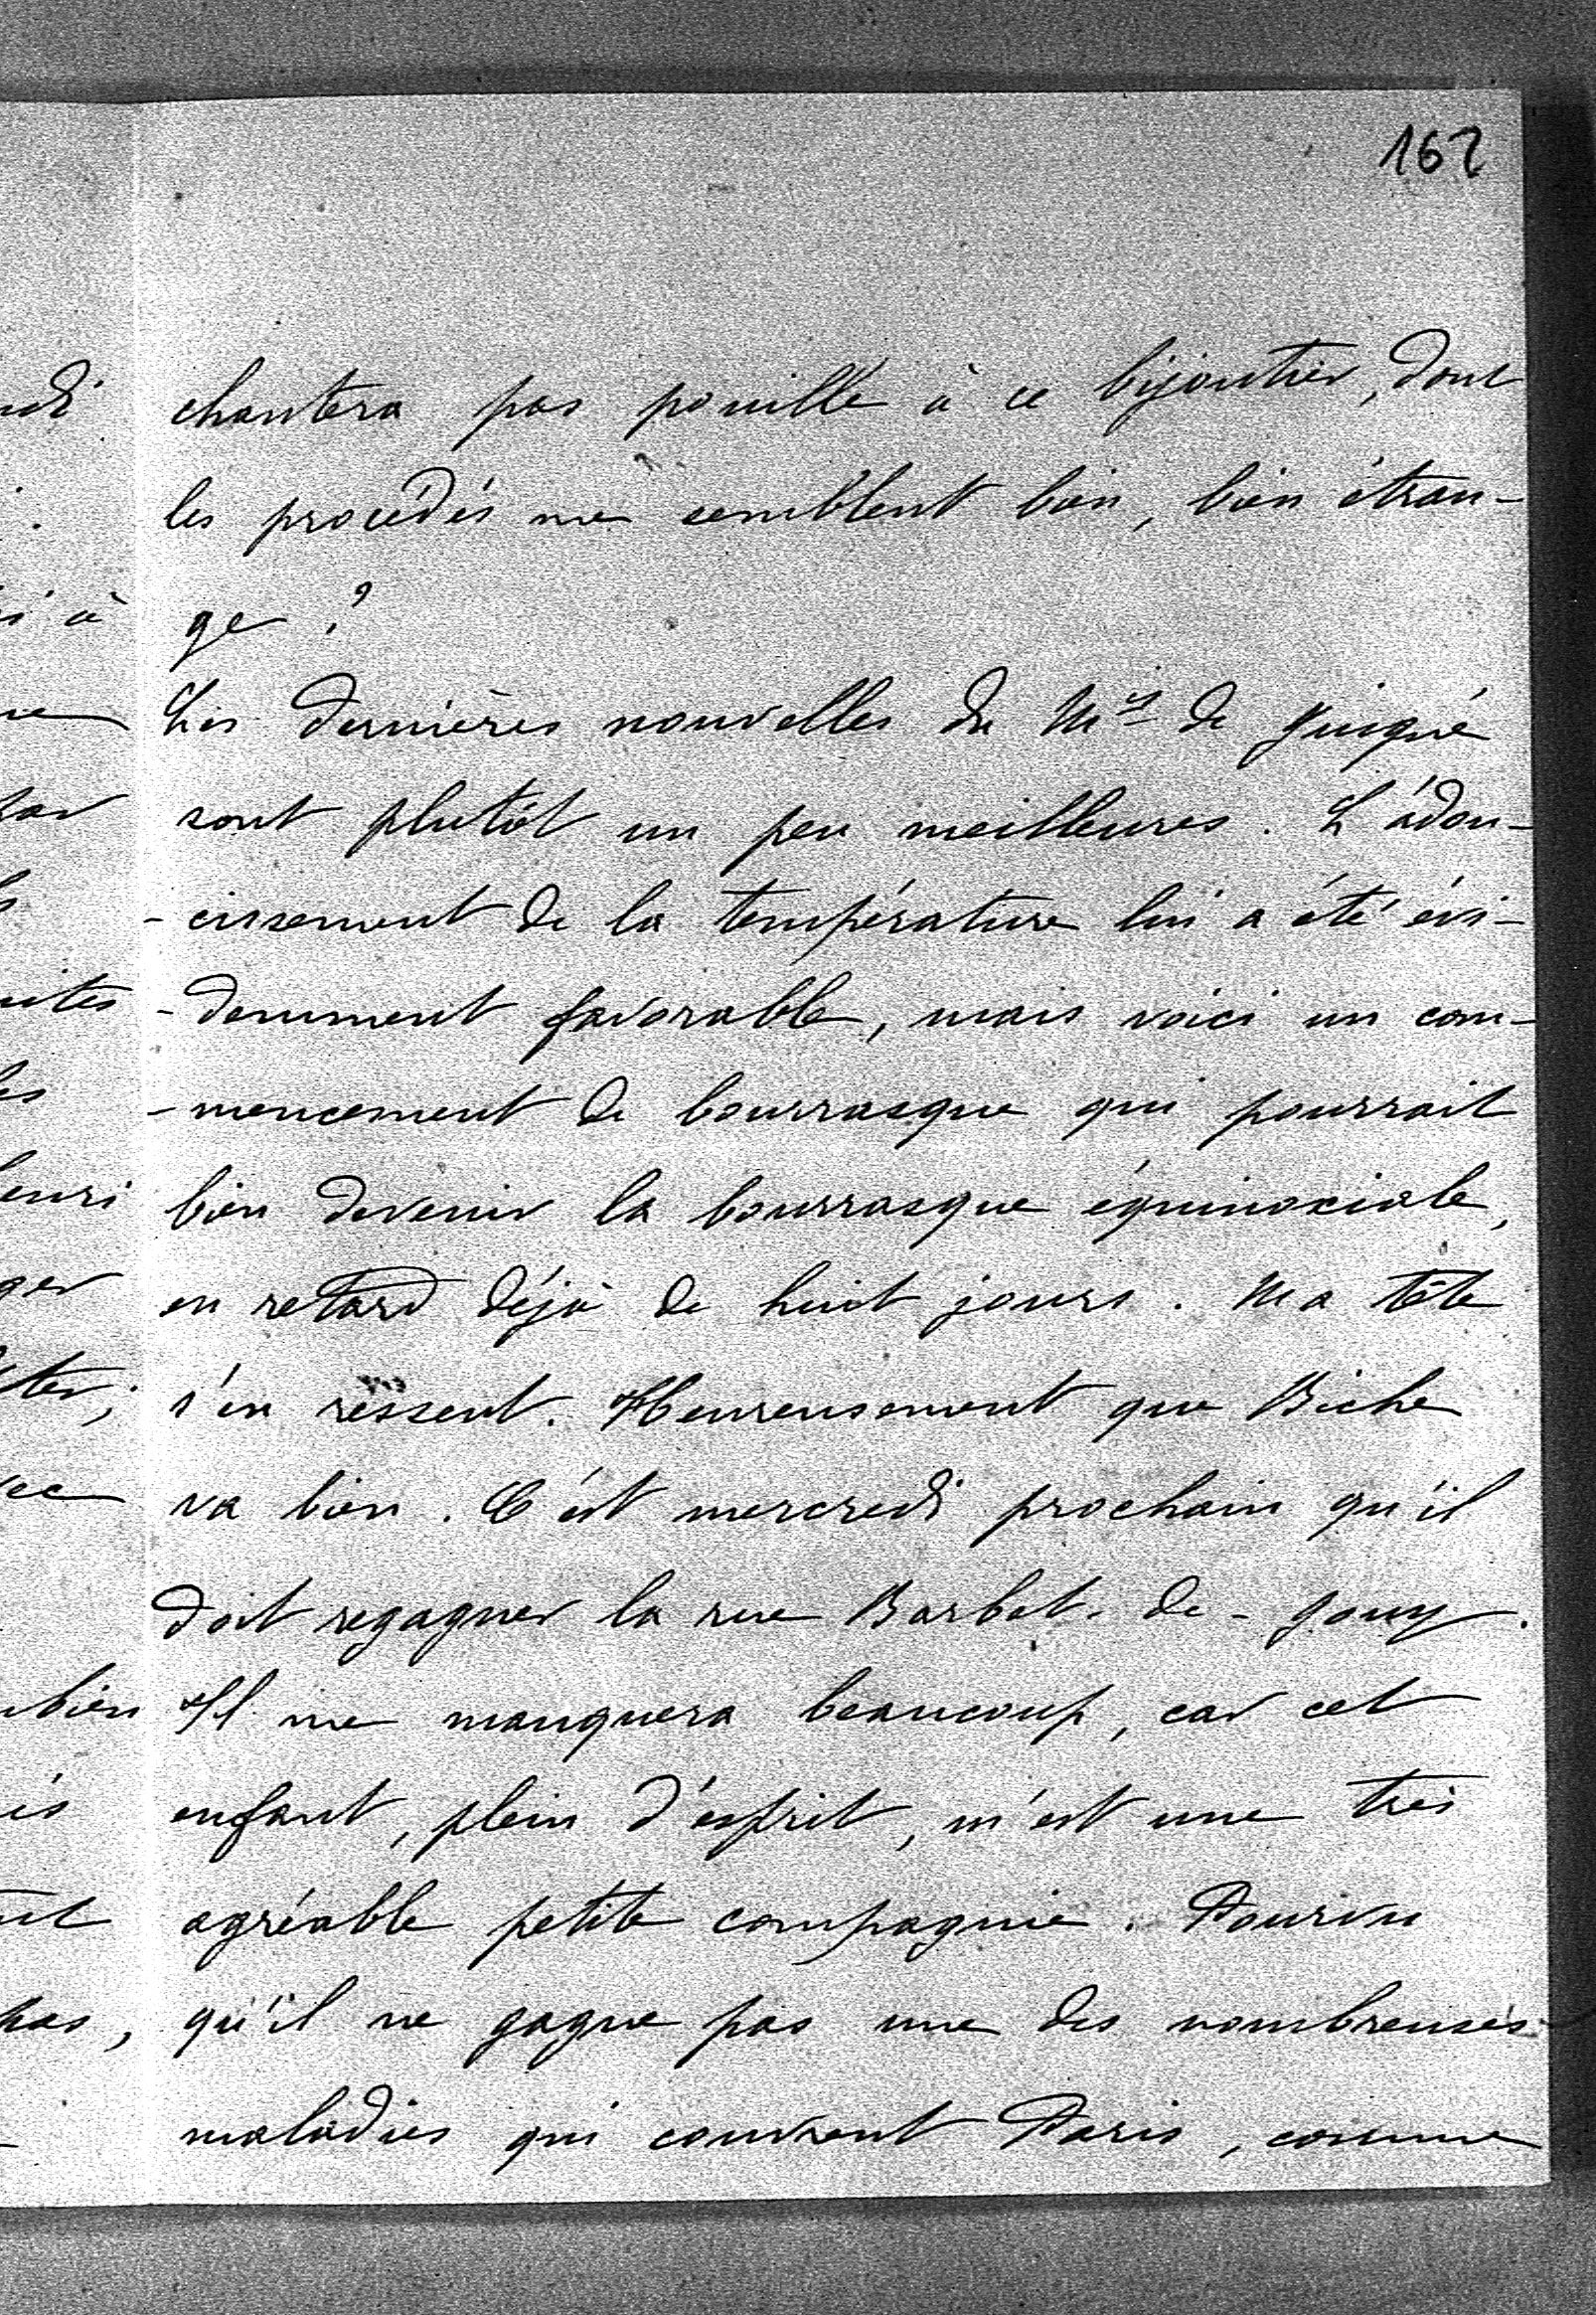 162
chantera pas pouille à ce bijoutier, dont
les procédés me semblent bien, bien étran-
ge ?
Les dernières nouvelles du Mis de Juigné
sont plutôt un peu meilleures. L'adou-
-cissement de la température lui a été évi-
-demment favorable, mais voici un com-
-mencement de bourrasque qui pourrait
bien devenir la bourrasque équinoxiale,
en retard déjà de huit jours. Ma tête
s'en ressent. Heureusement que Biche
va bien. C'est mercredi prochain qu'il
doit regagner la rue Barbet-de-Jouy.
Il me manquera beaucoup, car cet
enfant, plein d'esprit, m'est une très
agréable petite compagnie. Pourvu
qu'il ne gagne pas une des nombreuses
maladies qui courent Paris, comme